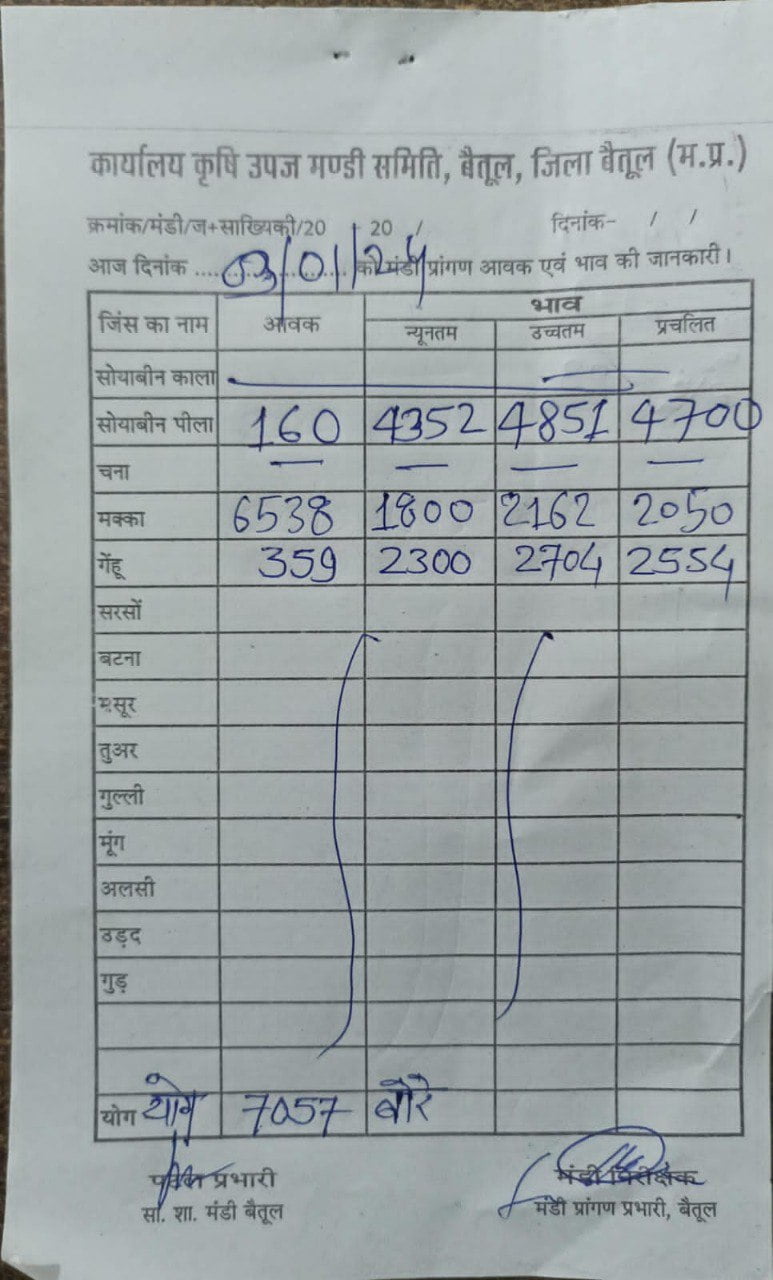 कार्यालय कृषि उपज मण्डी समिति, बैतूल, जिला बैतूल (म.प्र.)
क्रमांक/मंडी/ज+साख्यिकी/20 20 / दिनांक- / /
आज दिनांक .... 03/01/24 को मंडी प्रांगण आवक एवं भाव की जानकारी।
जिंस का नाम आवक भाव
न्यूनतम उच्चतम प्रचलित
सोयाबीन काला
सोयाबीन पीला 160 4352 4851 4700
चना — — — —
मक्का 6538 1800 2162 2050
गेंहू 359 2300 2704 2554
सरसों
बटना
मसूर
तुअर
गुल्ली
मूंग
अलसी
उड़द
गुड़
योग योग 7057 बोरे
प्रभारी मंडी निरीक्षक
सां. शा. मंडी बैतूल मंडी प्रांगण प्रभारी, बैतूल